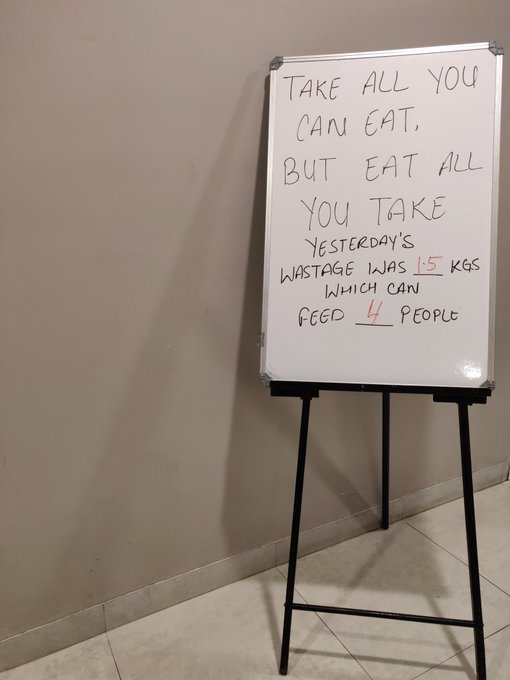 TAKE ALL YOU
CAN EAT,
BUT EAT ALL
YOU TAKE
YESTERDAY'S
WASTAGE WAS 1.5 KGS
WHICH CAN
FEED 4 PEOPLE